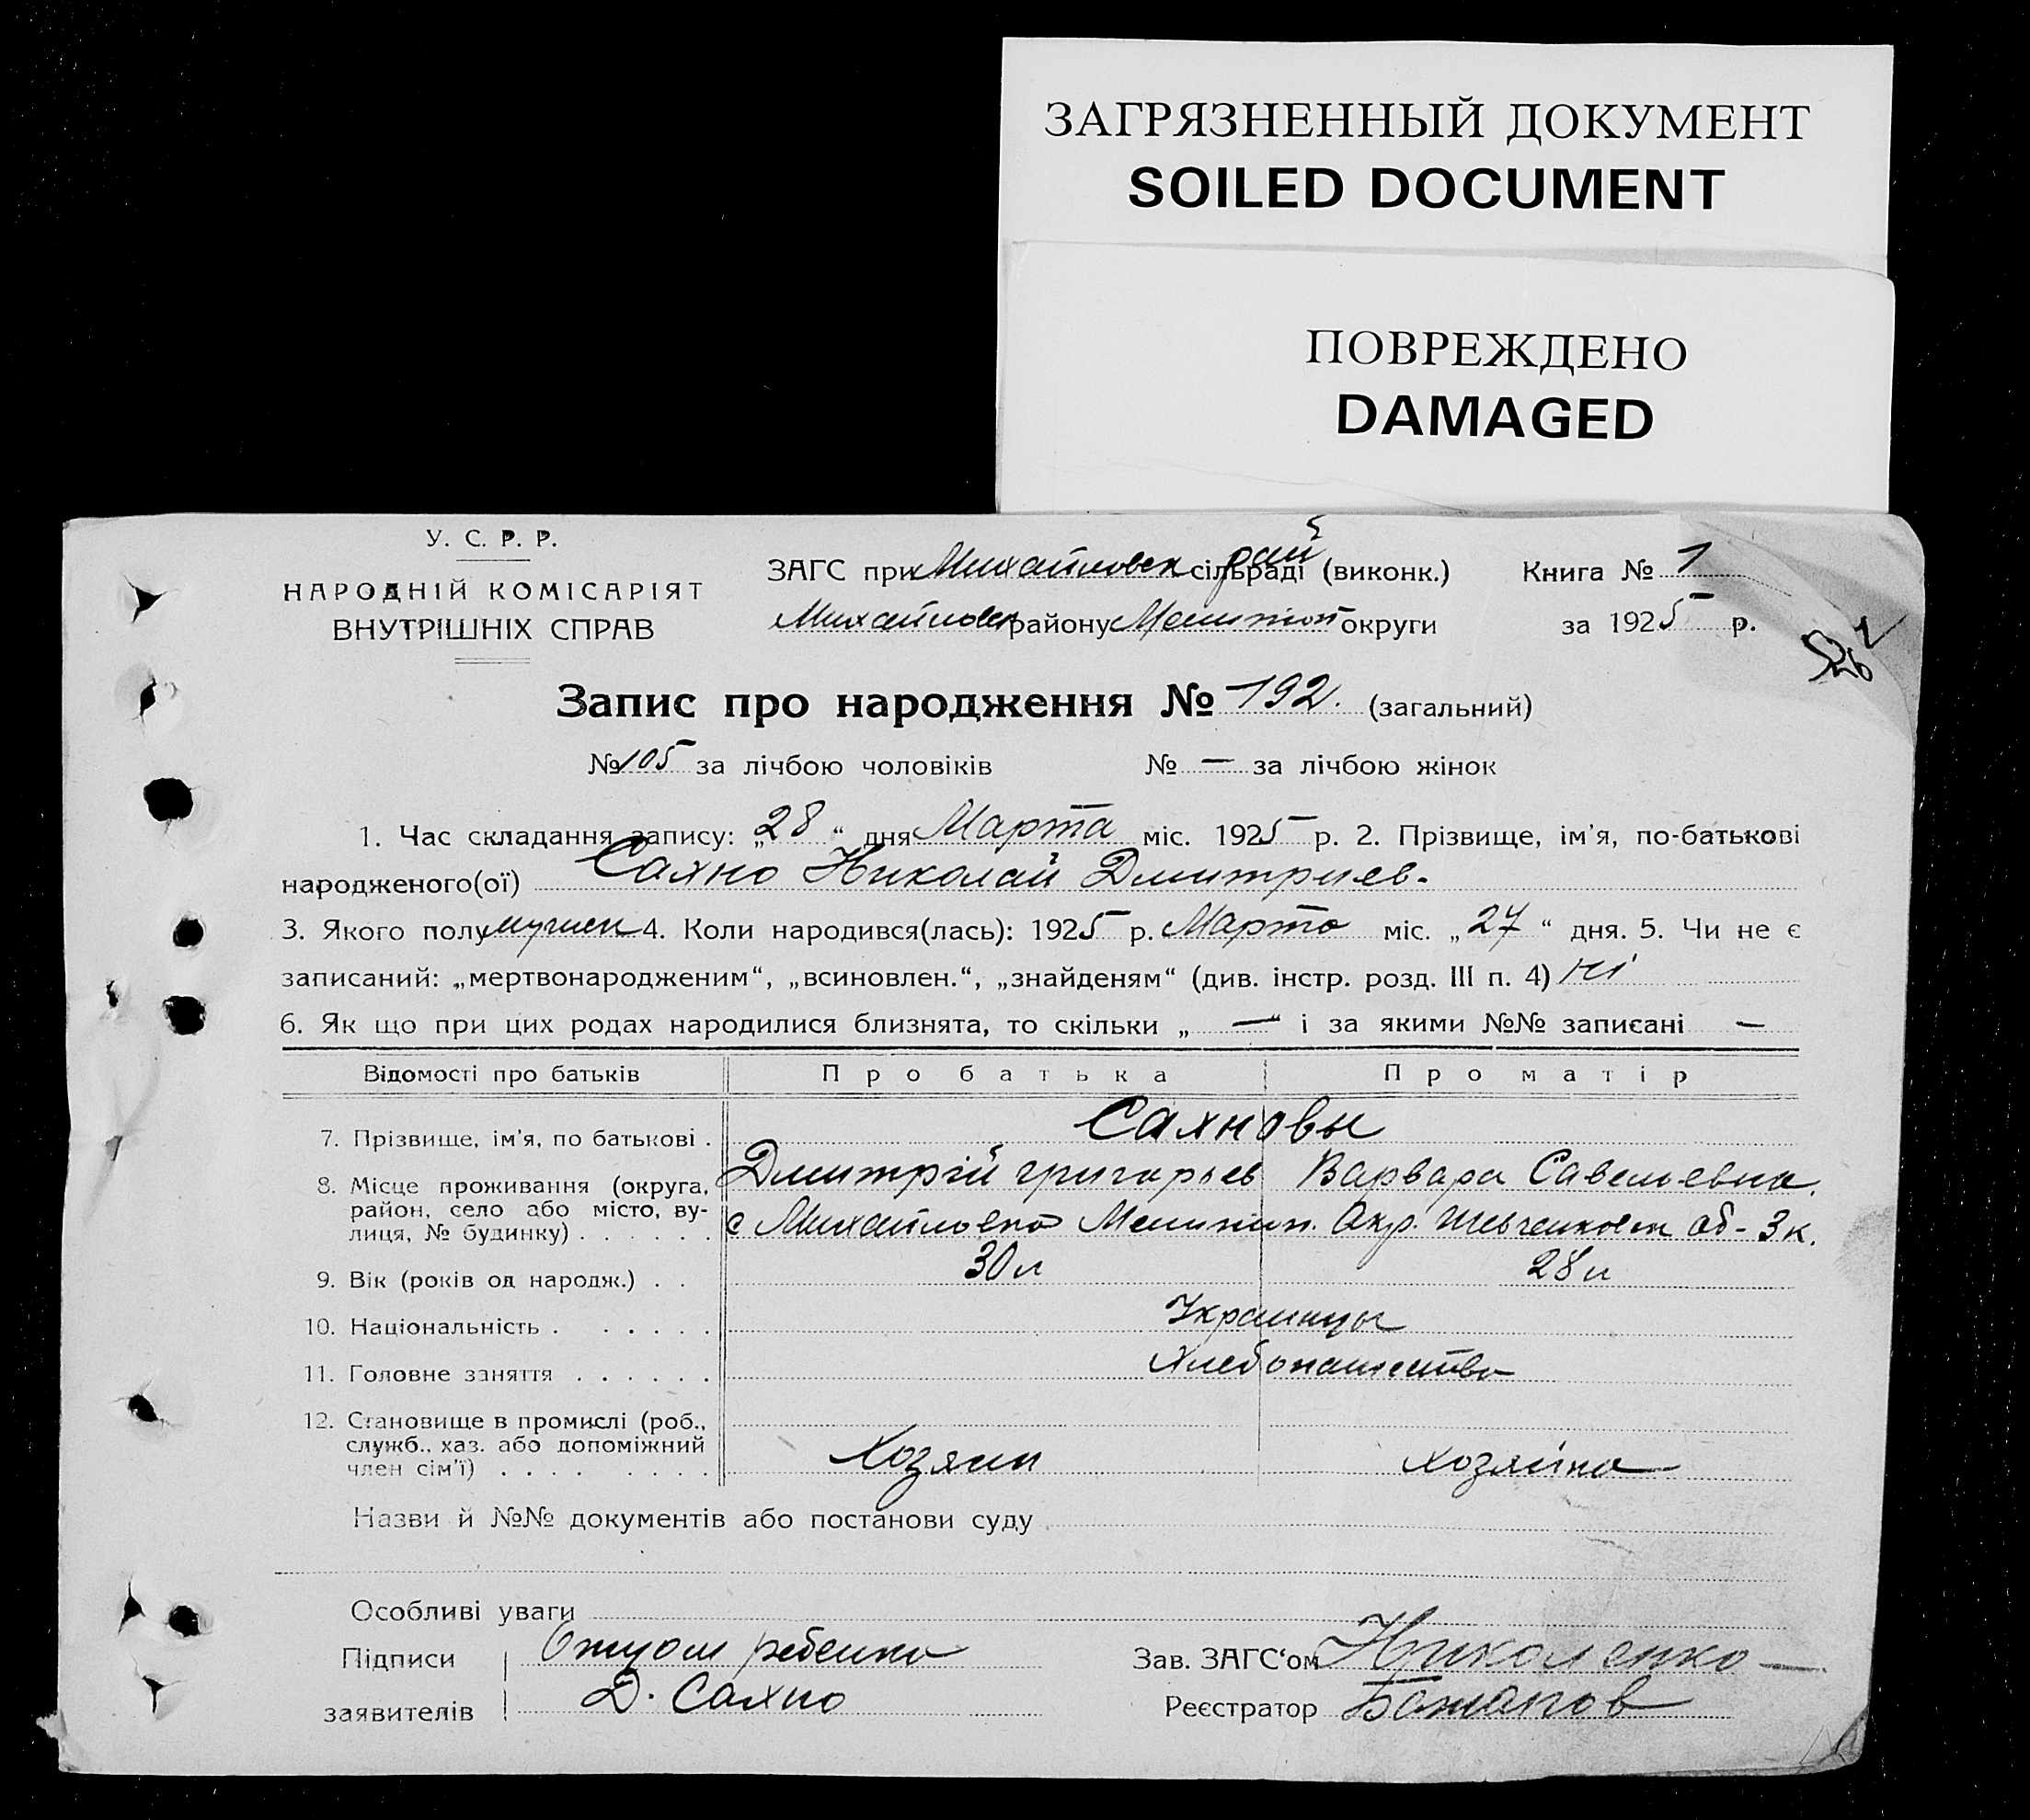 ЗАГРЯЗНЕННЫЙ ДОКУМЕНТ
SOILED DOCUMENT
ПОВРЕЖДЕНО
DAMAGED
У. С. Р. Р.
НАРОДНІЙ КОМІСАРІЯТ
ВНУТРІШНІХ СПРАВ
ЗАГС при Михайловск сільраді рай (виконк.) Книга № 1
Михайловск району Мелитоп округи за 1925 р.
Запис про народження № 192. (загальний)
№ 105 за лічбою чоловіків № — за лічбою жінок
1. Час складання запису: „28“ дня Марта міс. 1925 р. 2. Прізвище, ім'я, по-батькові
народженого(ої) Сахно Николай Дмитриев.
3. Якого полу мужск 4. Коли народився(лась): 1925 р. Марта міс. „27“ дня. 5. Чи не є
записаний: „мертвонародженим“, „всиновлен.“, „знайденям“ (див. інстр. розд. III п. 4) ні
6. Як що при цих родах народилися близнята, то скільки „ — “ і за якими №№ записані —
Відомості про батьків Про батька Про матір
7. Прізвище, ім'я, по батькові . Сахновы
Дмитрій Григорьев Варвара Савельевна.
8. Місце проживання (округа, район, село або місто, вулиця, № будинку) . . . . . . с Михайловка Мелитоп. Окр. Шевченковск об-3к.
9. Вік (років од народж.) . . 30 л 28 л
10. Національність . . . . . . Украинцы
11. Головне заняття . . . . . . Хлебопашество
12. Становище в промислі (роб.,
служб., хаз. або допоміжний
член сім'ї) . . . . . . . . Хозяин хозяйка
Назви й №№ документів або постанови суду
Особливі уваги
Підписи Отцом ребенка Зав. ЗАГС'ом Николенко
заявителів Д. Сахно Реєстратор